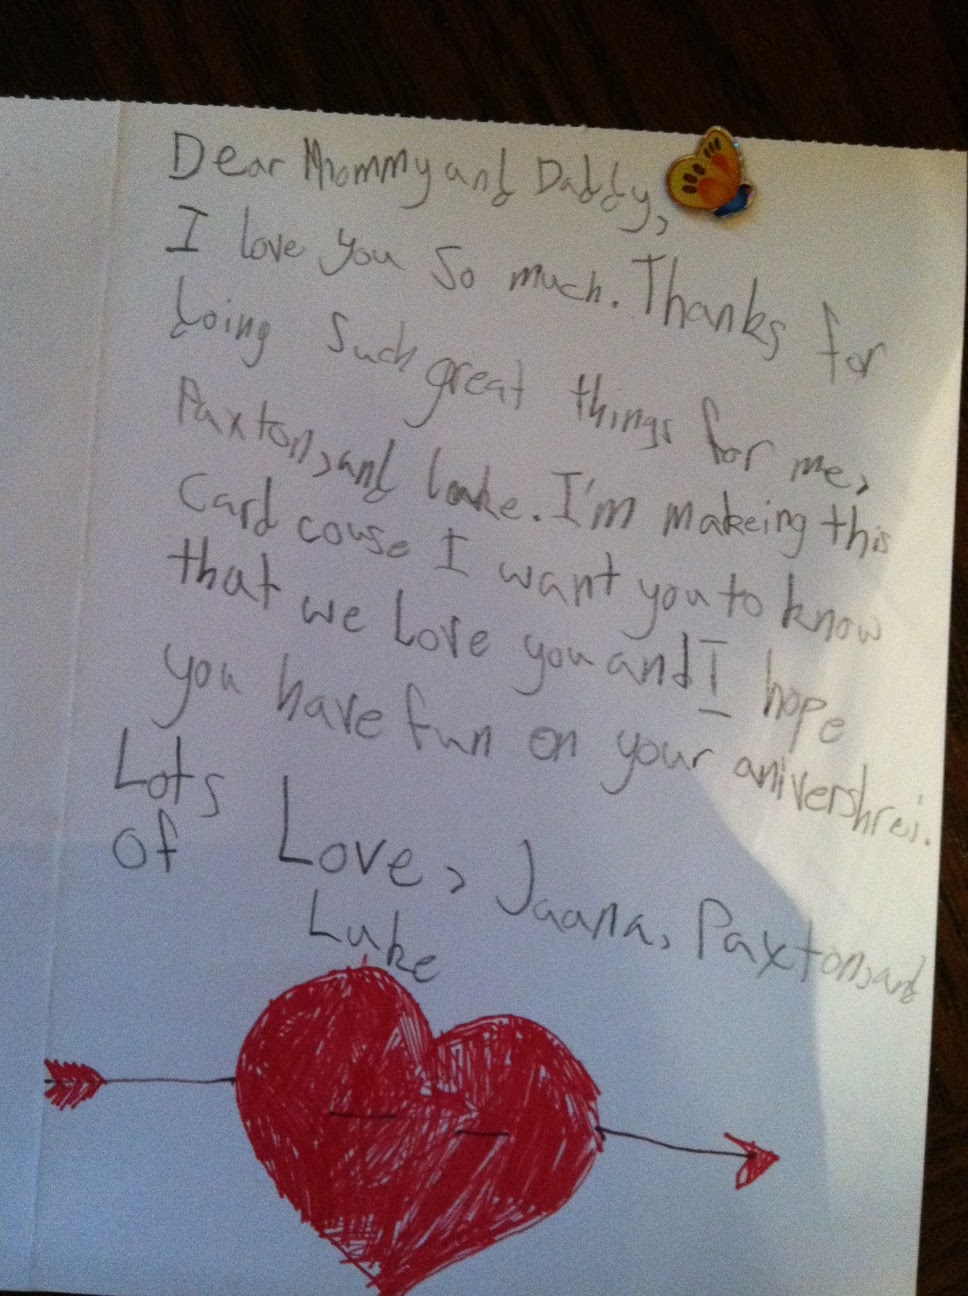 Dear Mommy and Daddy,
I love you so much. Thanks for
doing such great things for me,
Paxton, and luke. I'm makeing this
Card couse I want you to know
that we Love you and I hope
you have fun on your anivershrei.
Lots
of Love, Jaana, Paxton, and
Luke